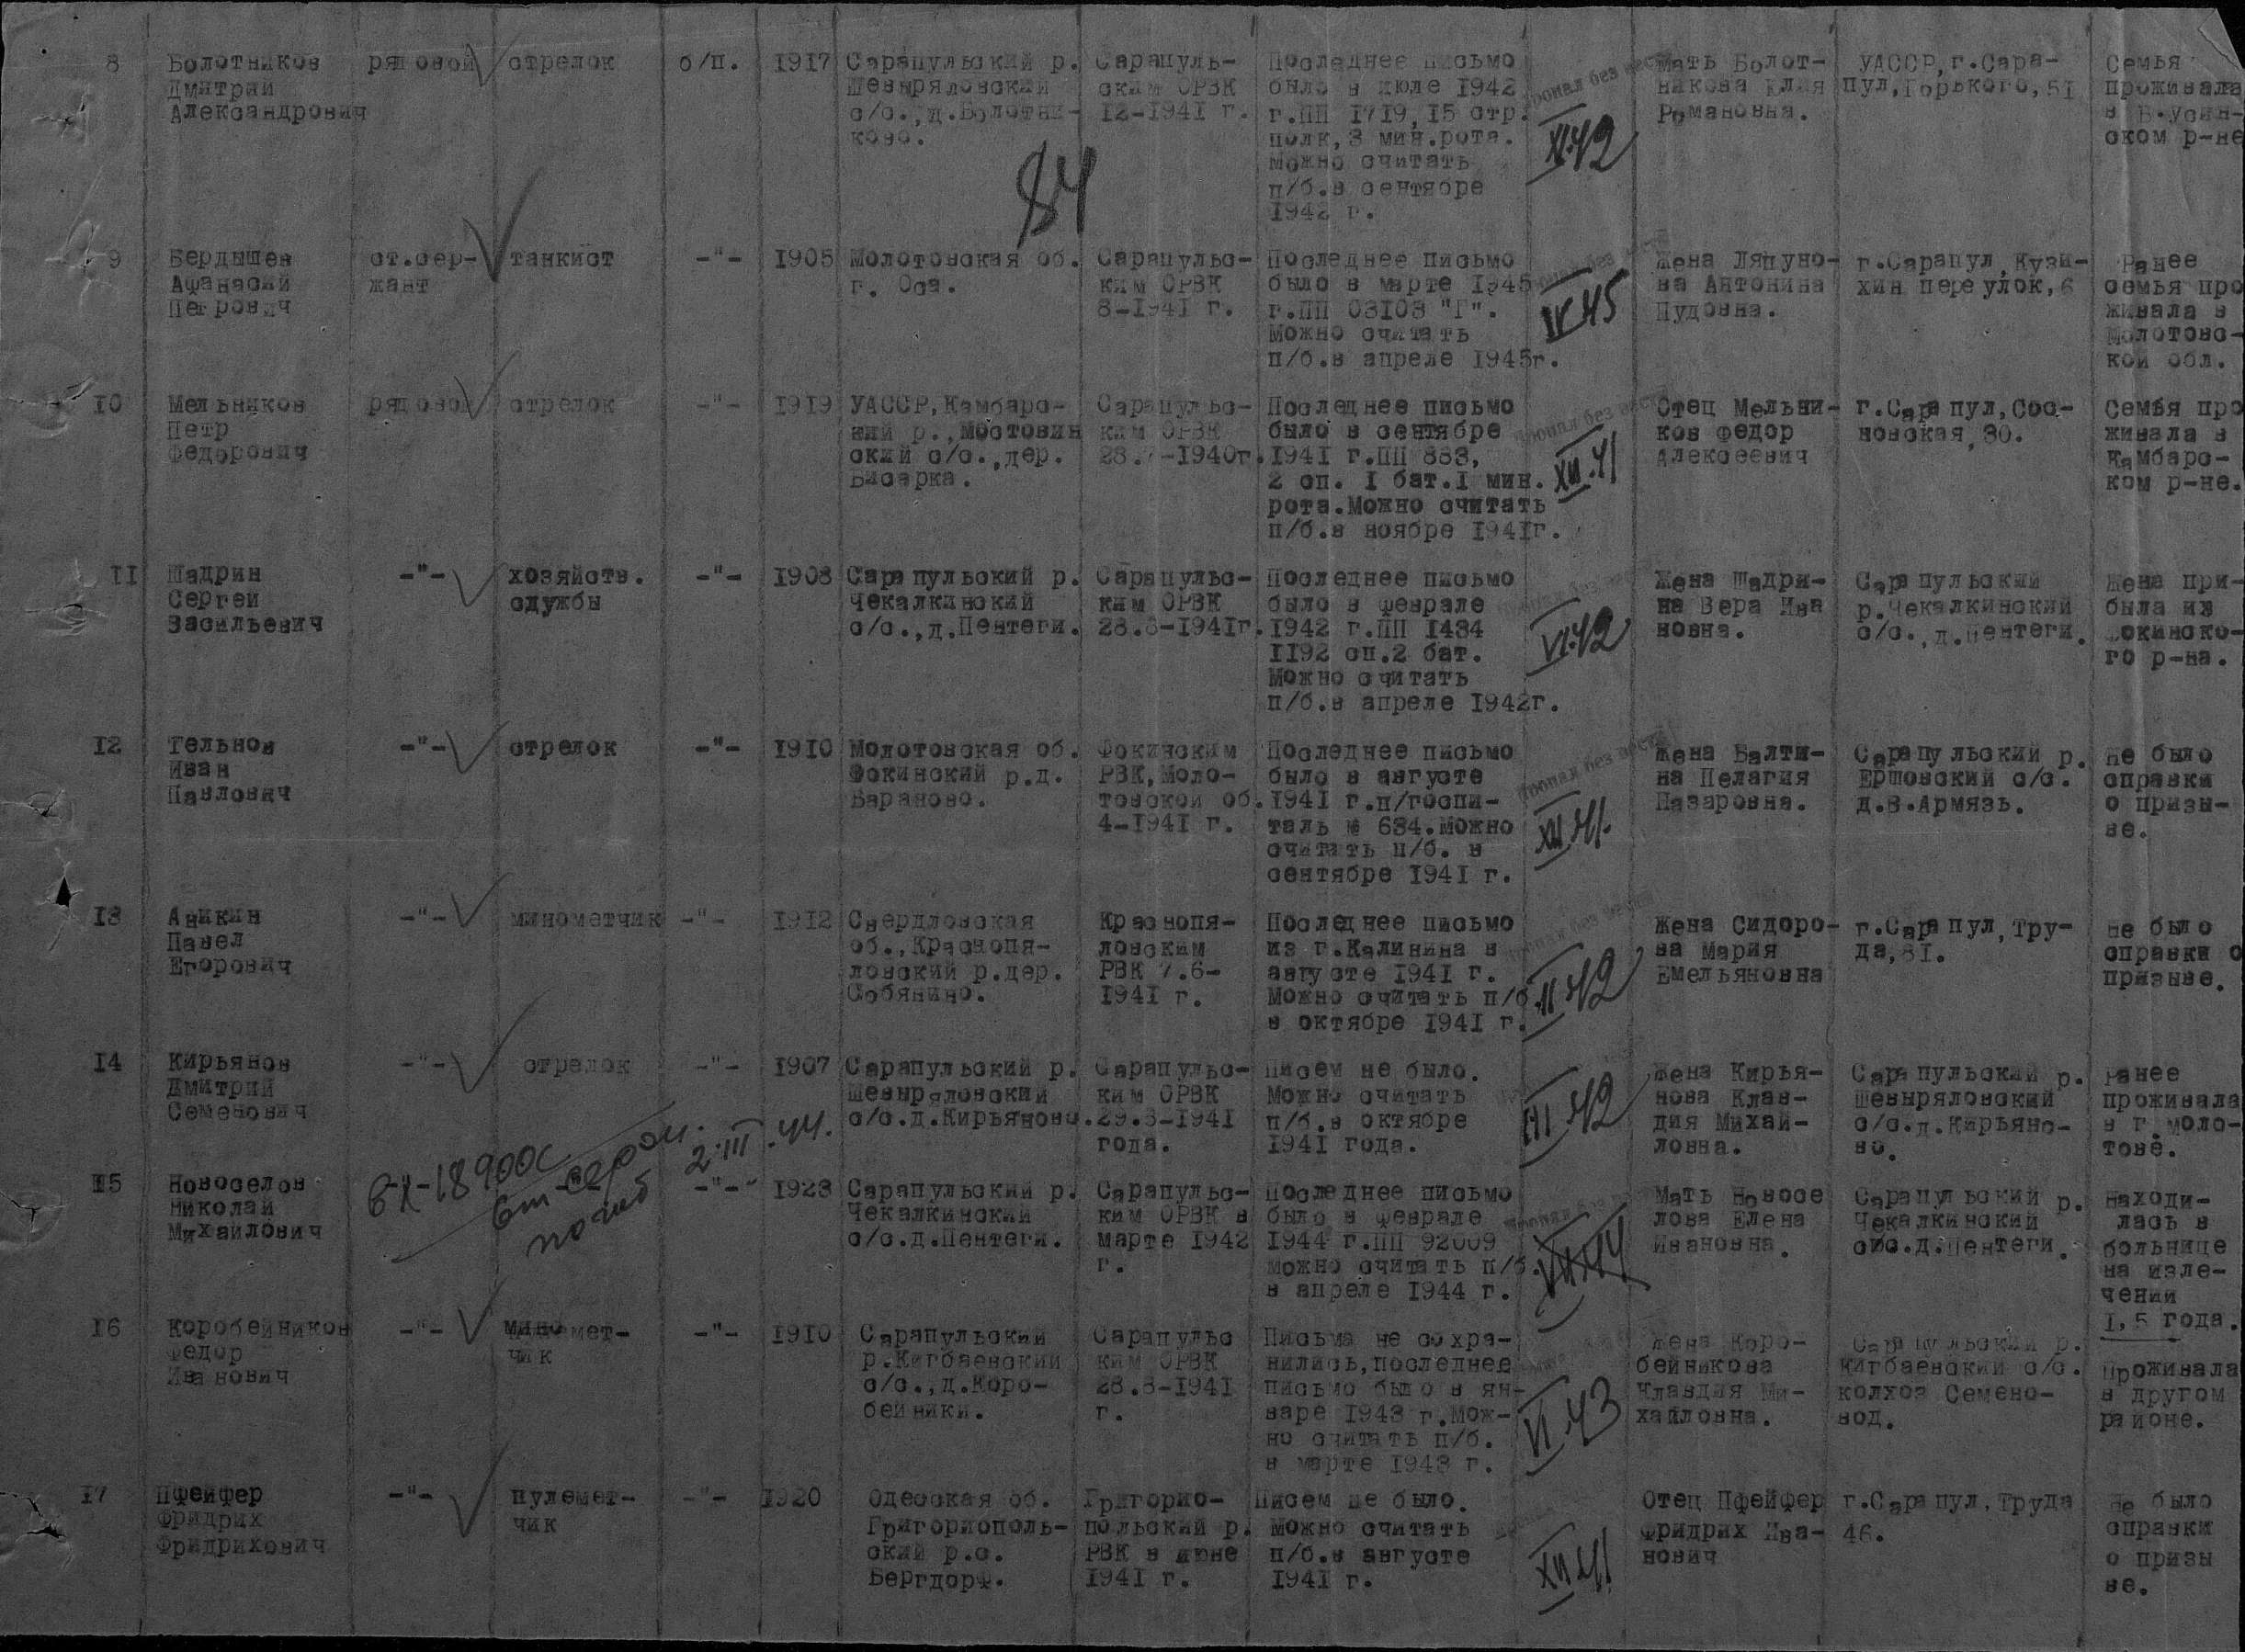 8
Болотников
Дмитрий
Александрович
рядовой
стрелок
б/п.
1917
Сарапульский р.
Шевыряловский
с/с.,д.Болотни-
ково.
Сарапуль-
ским ОРВК
12-1941 г.
Последнее письмо
было в июле 1942
г.ПП 1719,15 стр.
полк,3 мин.рота.
Можно считать
п/б.в сентябре
1942 г.
пропал без вести
XI.42
Мать Болот-
никова Юлия
Романовна.
УАССР,г.Сара-
пул,Горького,51
Семья
проживала
в В-усин-
ском р-не
84
9
Бердышев
Афанасий
Петрович
ст.сер-
жант
танкист
-"-
1905
Молотовская об.
г. Оса.
Сарапульс-
ким ОРВК
8-1941 г.
Последнее письмо
было в марте 1945
г.ПП 03103 "Г".
Можно считать
п/б.в апреле 1945г.
IV.45
Жена Ляпуно-
ва Антонина
Пудовна.
г.Сарапул,Кузи-
хин переулок,6
Ранее
семья про
живала в
Молотовс-
кой обл.
10
Мельников
Петр
Федорович
рядовой
стрелок
-"-
1919
УАССР,Камбарс-
кий р.,Мостовин
ский с/с.,дер.
Бисарка.
Сарапульс-
ким ОРВК
28.7-1940г.
Последнее письмо
было в сентябре
1941 г.ПП 883,
2 сп. I бат.I мин.
рота.Можно считать
п/б.в ноябре 1941г.
пропал без вести
XII.41
Отец Мельни-
ков Федор
Алексеевич
г.Сарапул,Сос-
новская,30.
Семья про
живала в
Камбарс-
ком р-не.
11
Шадрин
Сергей
Васильевич
-"-
хозяйств.
службы
-"-
1908
Сарапульский р.
Чекалкинский
с/с.,д.Пентеги.
Сарапульс-
ким ОРВК
28.8-1941г.
Последнее письмо
было в феврале
1942 г.ПП 1434
1192 сп.2 бат.
Можно считать
п/б.в апреле 1942г.
VI.42
Жена Шадри-
на Вера Ива
новна.
Сарапульский
р.Чекалкинский
с/с.,д.Пентеги.
Жена при-
была из
Фокинско-
го р-на.
12
Тельнов
Иван
Павлович
-"-
стрелок
-"-
1910
Молотовская об.
Фокинский р.д.
Бараново.
Фокинским
РВК,Моло-
товской об.
4-1941 г.
Последнее письмо
было в августе
1941 г.п/госпи-
таль № 634.Можно
считать п/б. в
сентябре 1941 г.
пропал без вести
XII.41.
Жена Балти-
на Пелагия
Назаровна.
Сарапульский р.
Ершовский с/с.
д.В.Армязь.
Не было
справки
о призы-
ве.
13
Аникин
Павел
Егорович
-"-
минометчик
-"-
1912
Свердловская
об.,Краснопя-
ловский р.дер.
Собянино.
Краснопя-
ловским
РВК 7.6-
1941 г.
Последнее письмо
из г.Калинина в
августе 1941 г.
Можно считать п/б.
в октябре 1941 г.
II.42
Жена Сидоро-
ва Мария
Емельяновна
г.Сарапул,Тру-
да,81.
Не было
справки о
призыве.
14
Кирьянов
Дмитрий
Семенович
-"-
стрелок
-"-
1907
Сарапульский р.
Шевыряловский
с/с.д.Кирьяново.
Сарапульс-
ким ОРВК
29.8-1941
года.
Писем не было.
Можно считать
п/б.в октябре
1941 года.
III.42
Жена Кирья-
нова Клав-
дия Михай-
ловна.
Сарапульский р.
Шевыряловский
с/с.д.Кирьяно-
во.
Ранее
проживала
в г.Моло-
тове.
15
Новоселов
Николай
Михайлович
вх-18900с
погиб
2.III.44.
-"-
1923
Сарапульский р.
Чекалкинский
с/с.д.Пентеги.
Сарапульс-
ким ОРВК в
марте 1942
г.
Последнее письмо
было в феврале
1944 г.ПП 92009
Можно считать п/б.
в апреле 1944 г.
Мать Новосе
лова Елена
Ивановна.
Сарапульский р.
Чекалкинский
с/с.д.Пентеги.
Находи-
лась в
больнице
на изле-
чении
1,5 года.
16
Коробейников
Федор
Иванович
-"-
миномет-
чик
-"-
1910
Сарапульский
р.Кигбаевский
с/с.,д.Коро-
бейники.
Сарапульс
ким ОРВК
28.8-1941
г.
Письма не сохра-
нились,последнее
письмо было в ян-
варе 1943 г.Мож-
но считать п/б.
в марте 1943 г.
VI.43
Жена Коро-
бейникова
Клавдия Ми-
хайловна.
Сарапульский р.
Кигбаевский с/с.
колхоз Семено-
вод.
Проживала
в другом
районе.
17
Пфейфер
Фридрих
Фридрихович
-"-
пулемет-
чик
-"-
1920
Одесская об.
Григориополь-
ский р.с.
Бергдорф.
Григорио-
польский р.
РВК в июне
1941 г.
Писем не было.
Можно считать
п/б.в августе
1941 г.
XII.41
Отец Пфейфер
Фридрих Ива-
нович
г.Сарапул,Труда
46.
Не было
справки
о призы
ве.